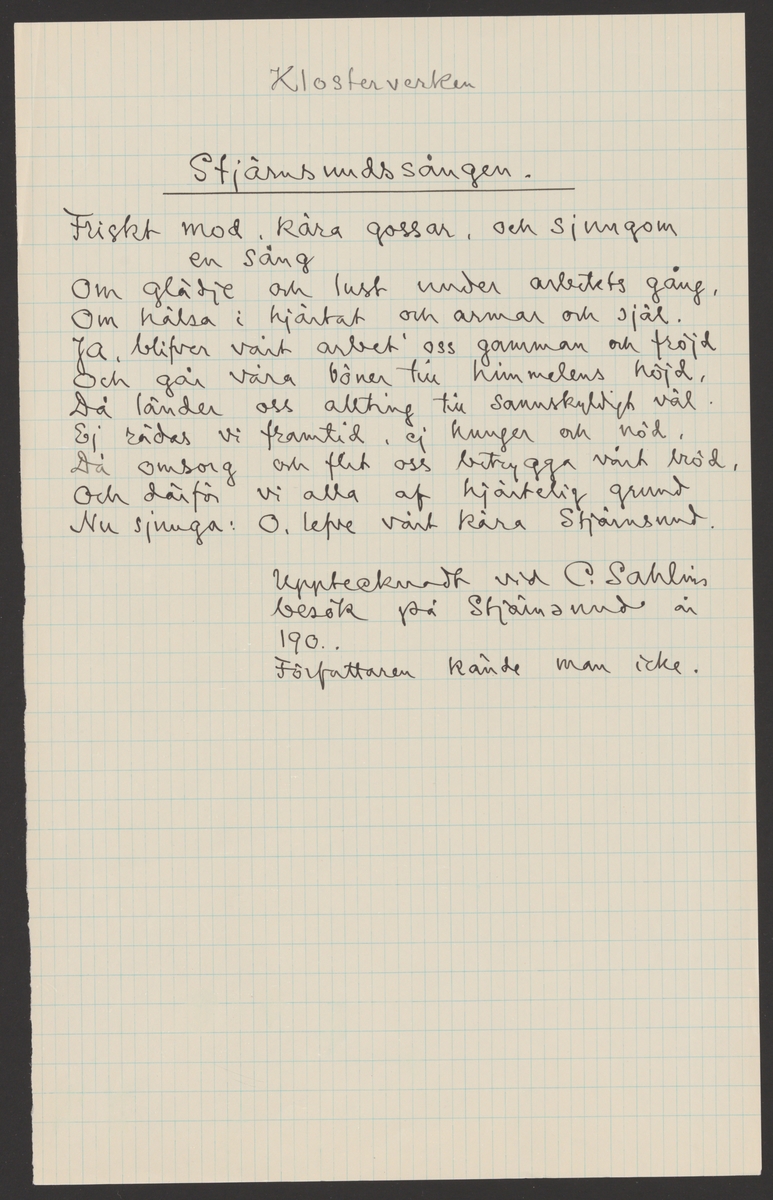 Klosterverken
Stjärnsundssången.
Friskt mod, kära gossar, och sjungom
en sång
Om glädje och lust under arbetets gång,
Om hälsa i hjärtat och armar och själ.
Ja, blifver vårt arbet' oss gamman och fröjd
Och går våra böner till himmelens höjd,
Då länder oss allting till sannskyldigt väl.
Ej rädas vi framtid, ej hunger och nöd,
Då omsorg och flit oss betrygga vårt bröd,
Och därför vi alla af hjärtelig grund
Nu sjunga: O, lefve vårt kära Stjärnsund.
Upptecknadt vid C. Sahlins
besök på Stjärnsund år
190..
Författaren kände man icke.